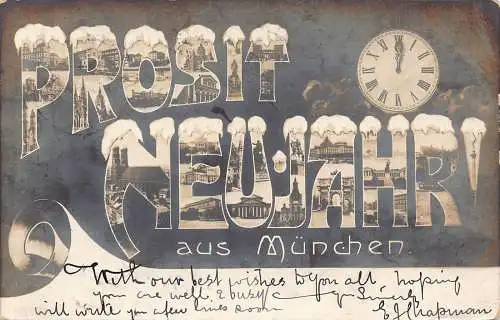 PROSIT
NEU-JAHR!
aus München.
With our best wishes to you all hoping
you are well, & busy
will write you a few lines soon
E J Chapman